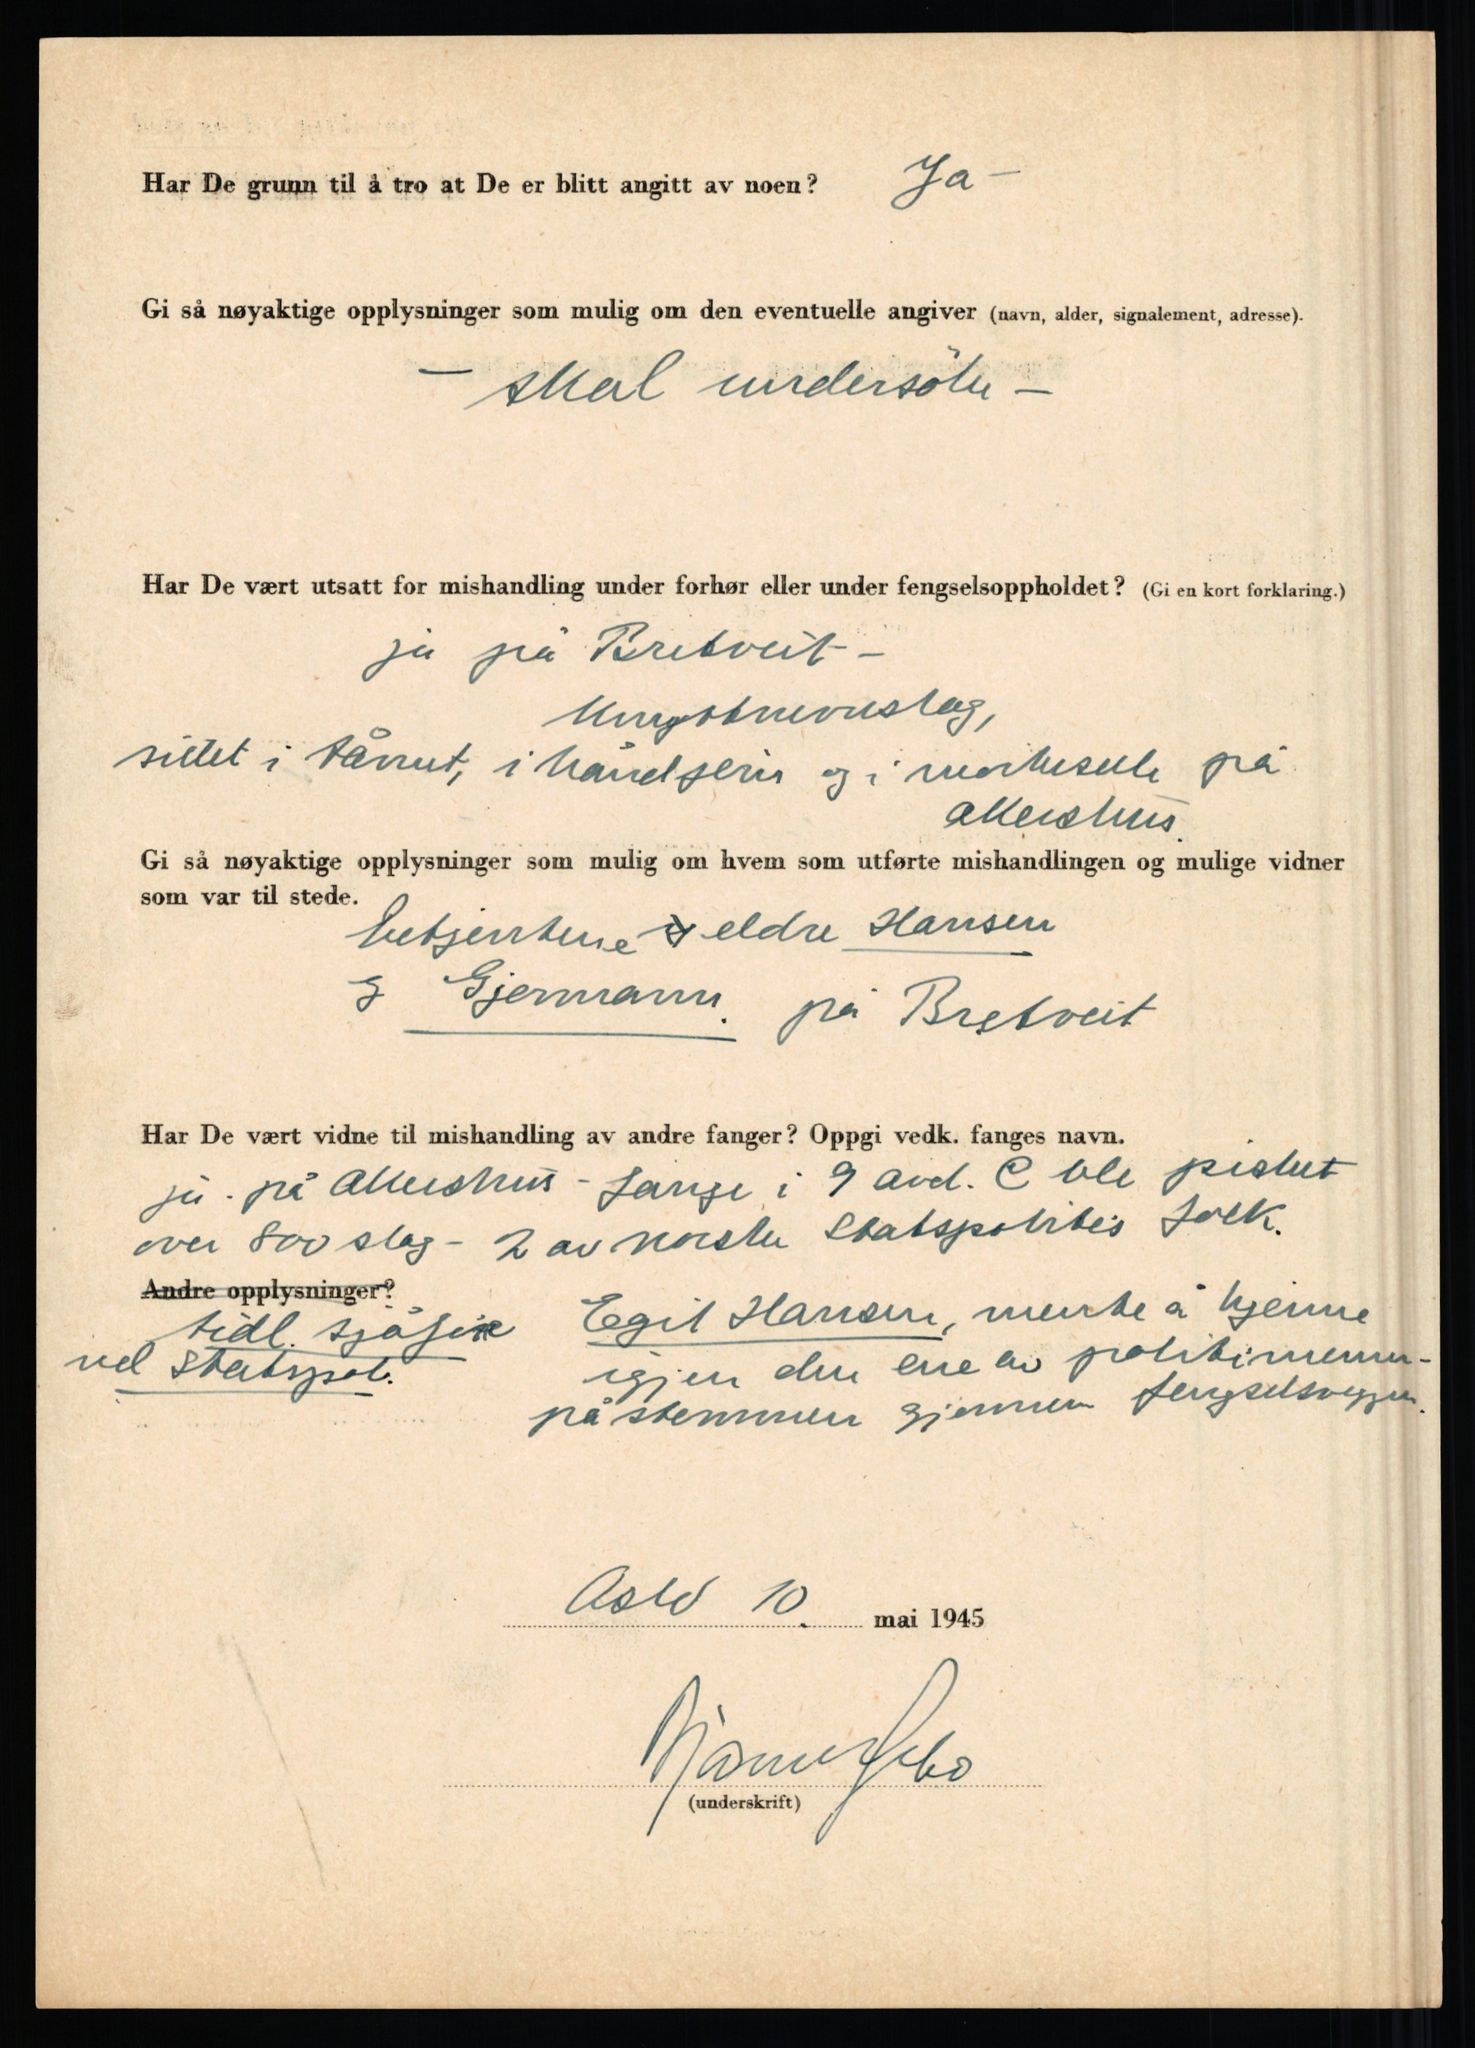 Har De grunn til å tro at De er blitt angitt av noen? Ja –
Gi så nøyaktige opplysninger som mulig om den eventuelle angiver (navn, alder, signalement, adresse).
– skal undersöke –
Har De vært utsatt for mishandling under forhør eller under fengselsoppholdet? (Gi en kort forklaring.)
ja på Bretveit –
sittet i tårnet, i håndjern og i mörkecelle på
Akershus.
Gi så nøyaktige opplysninger som mulig om hvem som utførte mishandlingen og mulige vidner
som var til stede.
betjentene eldre Hansen
g Gjermann. på Bretveit
Har De vært vidne til mishandling av andre fanger? Oppgi vedk. fanges navn.
ja. på Akershus – fange i 9 avd. C ble pisket
over 800 slag – 2 av norske Statspolitis folk.
Andre opplysninger?
tidl. sjåför
ved Statspol.
Egil Hansen, mente å kjenne
igjen den ene av politimenn-
på stemmen gjennem fengselsveggen.
Oslo 10. mai 1945
Bjarne
(underskrift)